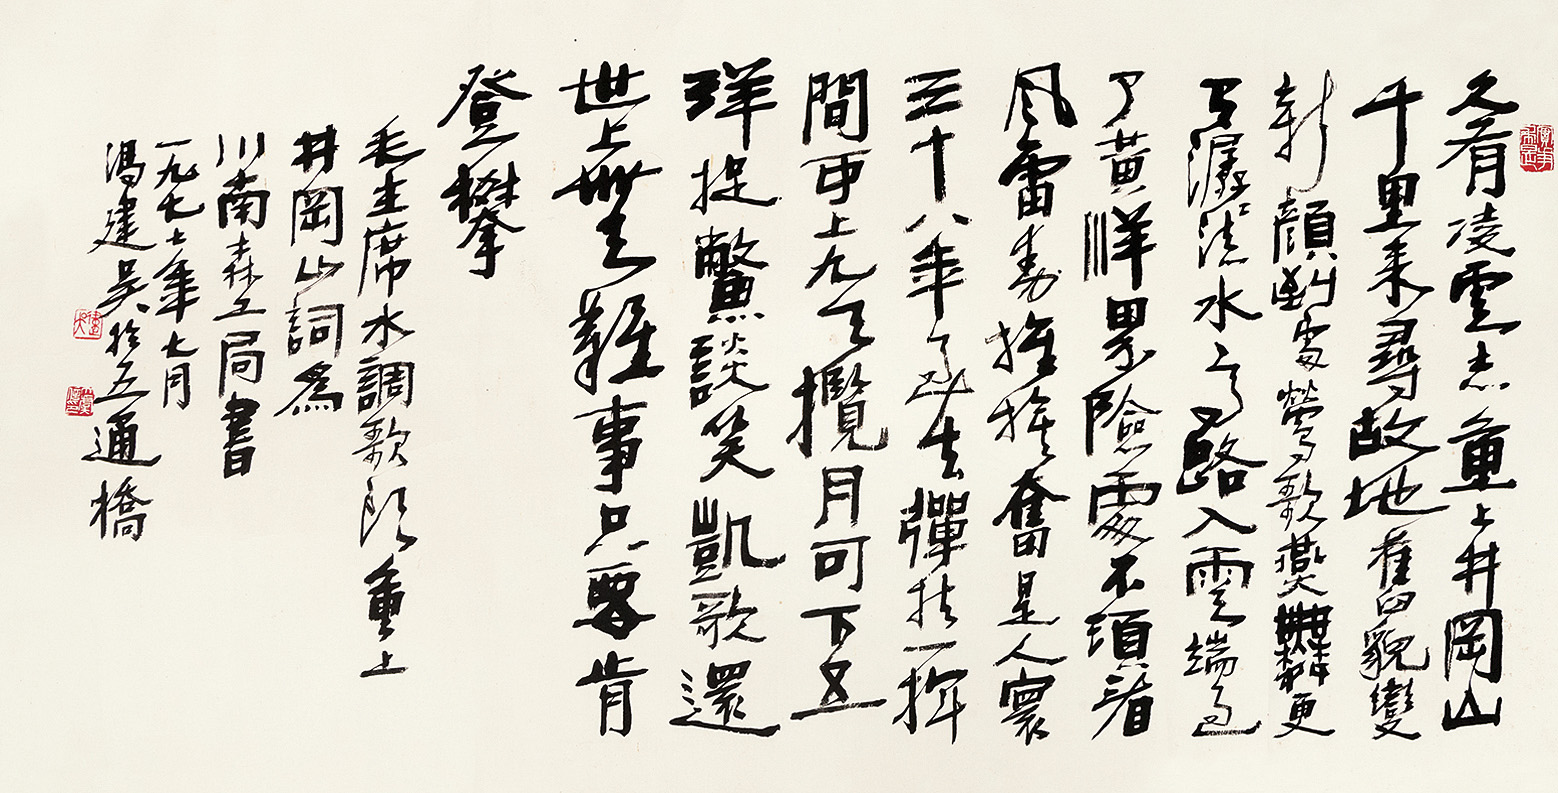 久有凌雲志重上井岡山
千里来尋故地舊貌變
新顔到處鶯歌燕舞更
有潺潺流水高路入雲端過
了黃洋界險處不須看
風雷動旌旗奮是人寰
三十八年過去彈指一揮
間可上九天攬月可下五
洋捉鱉談笑凱歌還
世上無難事只要肯
登攀
毛主席水調歌頭重上
井岡山詞為
川南森工局書
一九七七年七月
馮建吴於五通橋